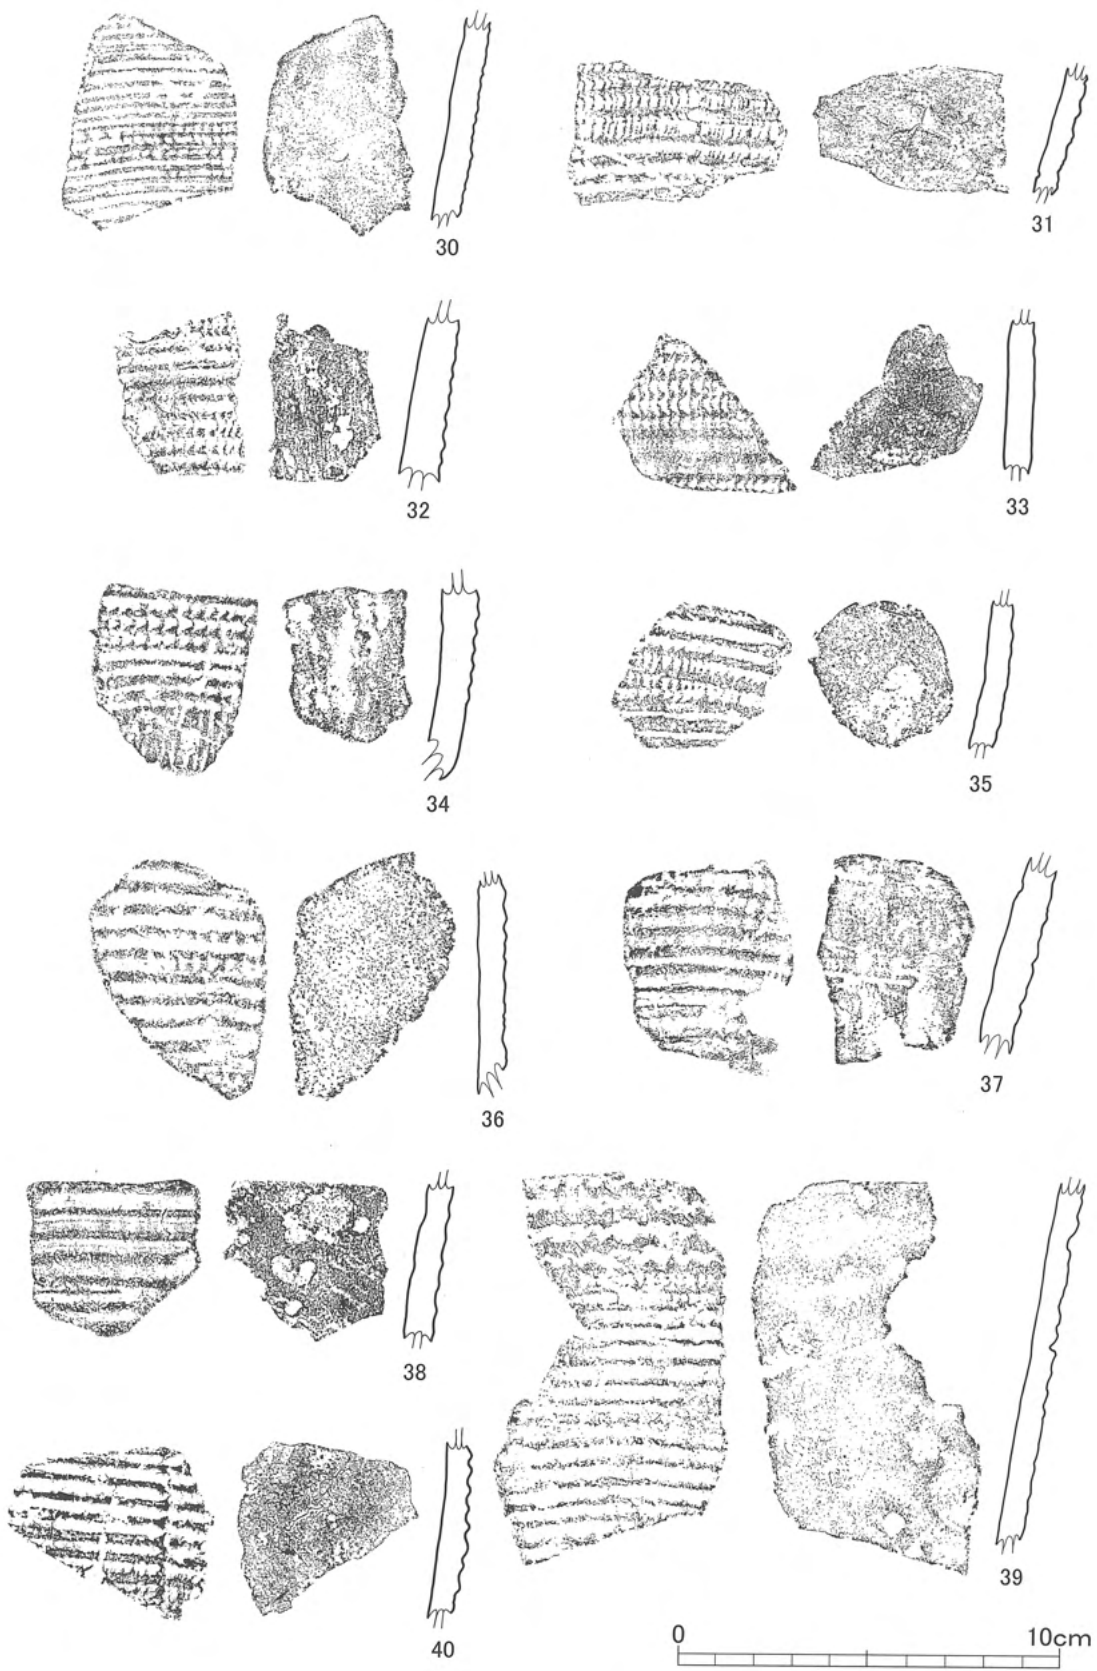 30
31
32
33
34
35
36
37
38
39
40
0 10cm